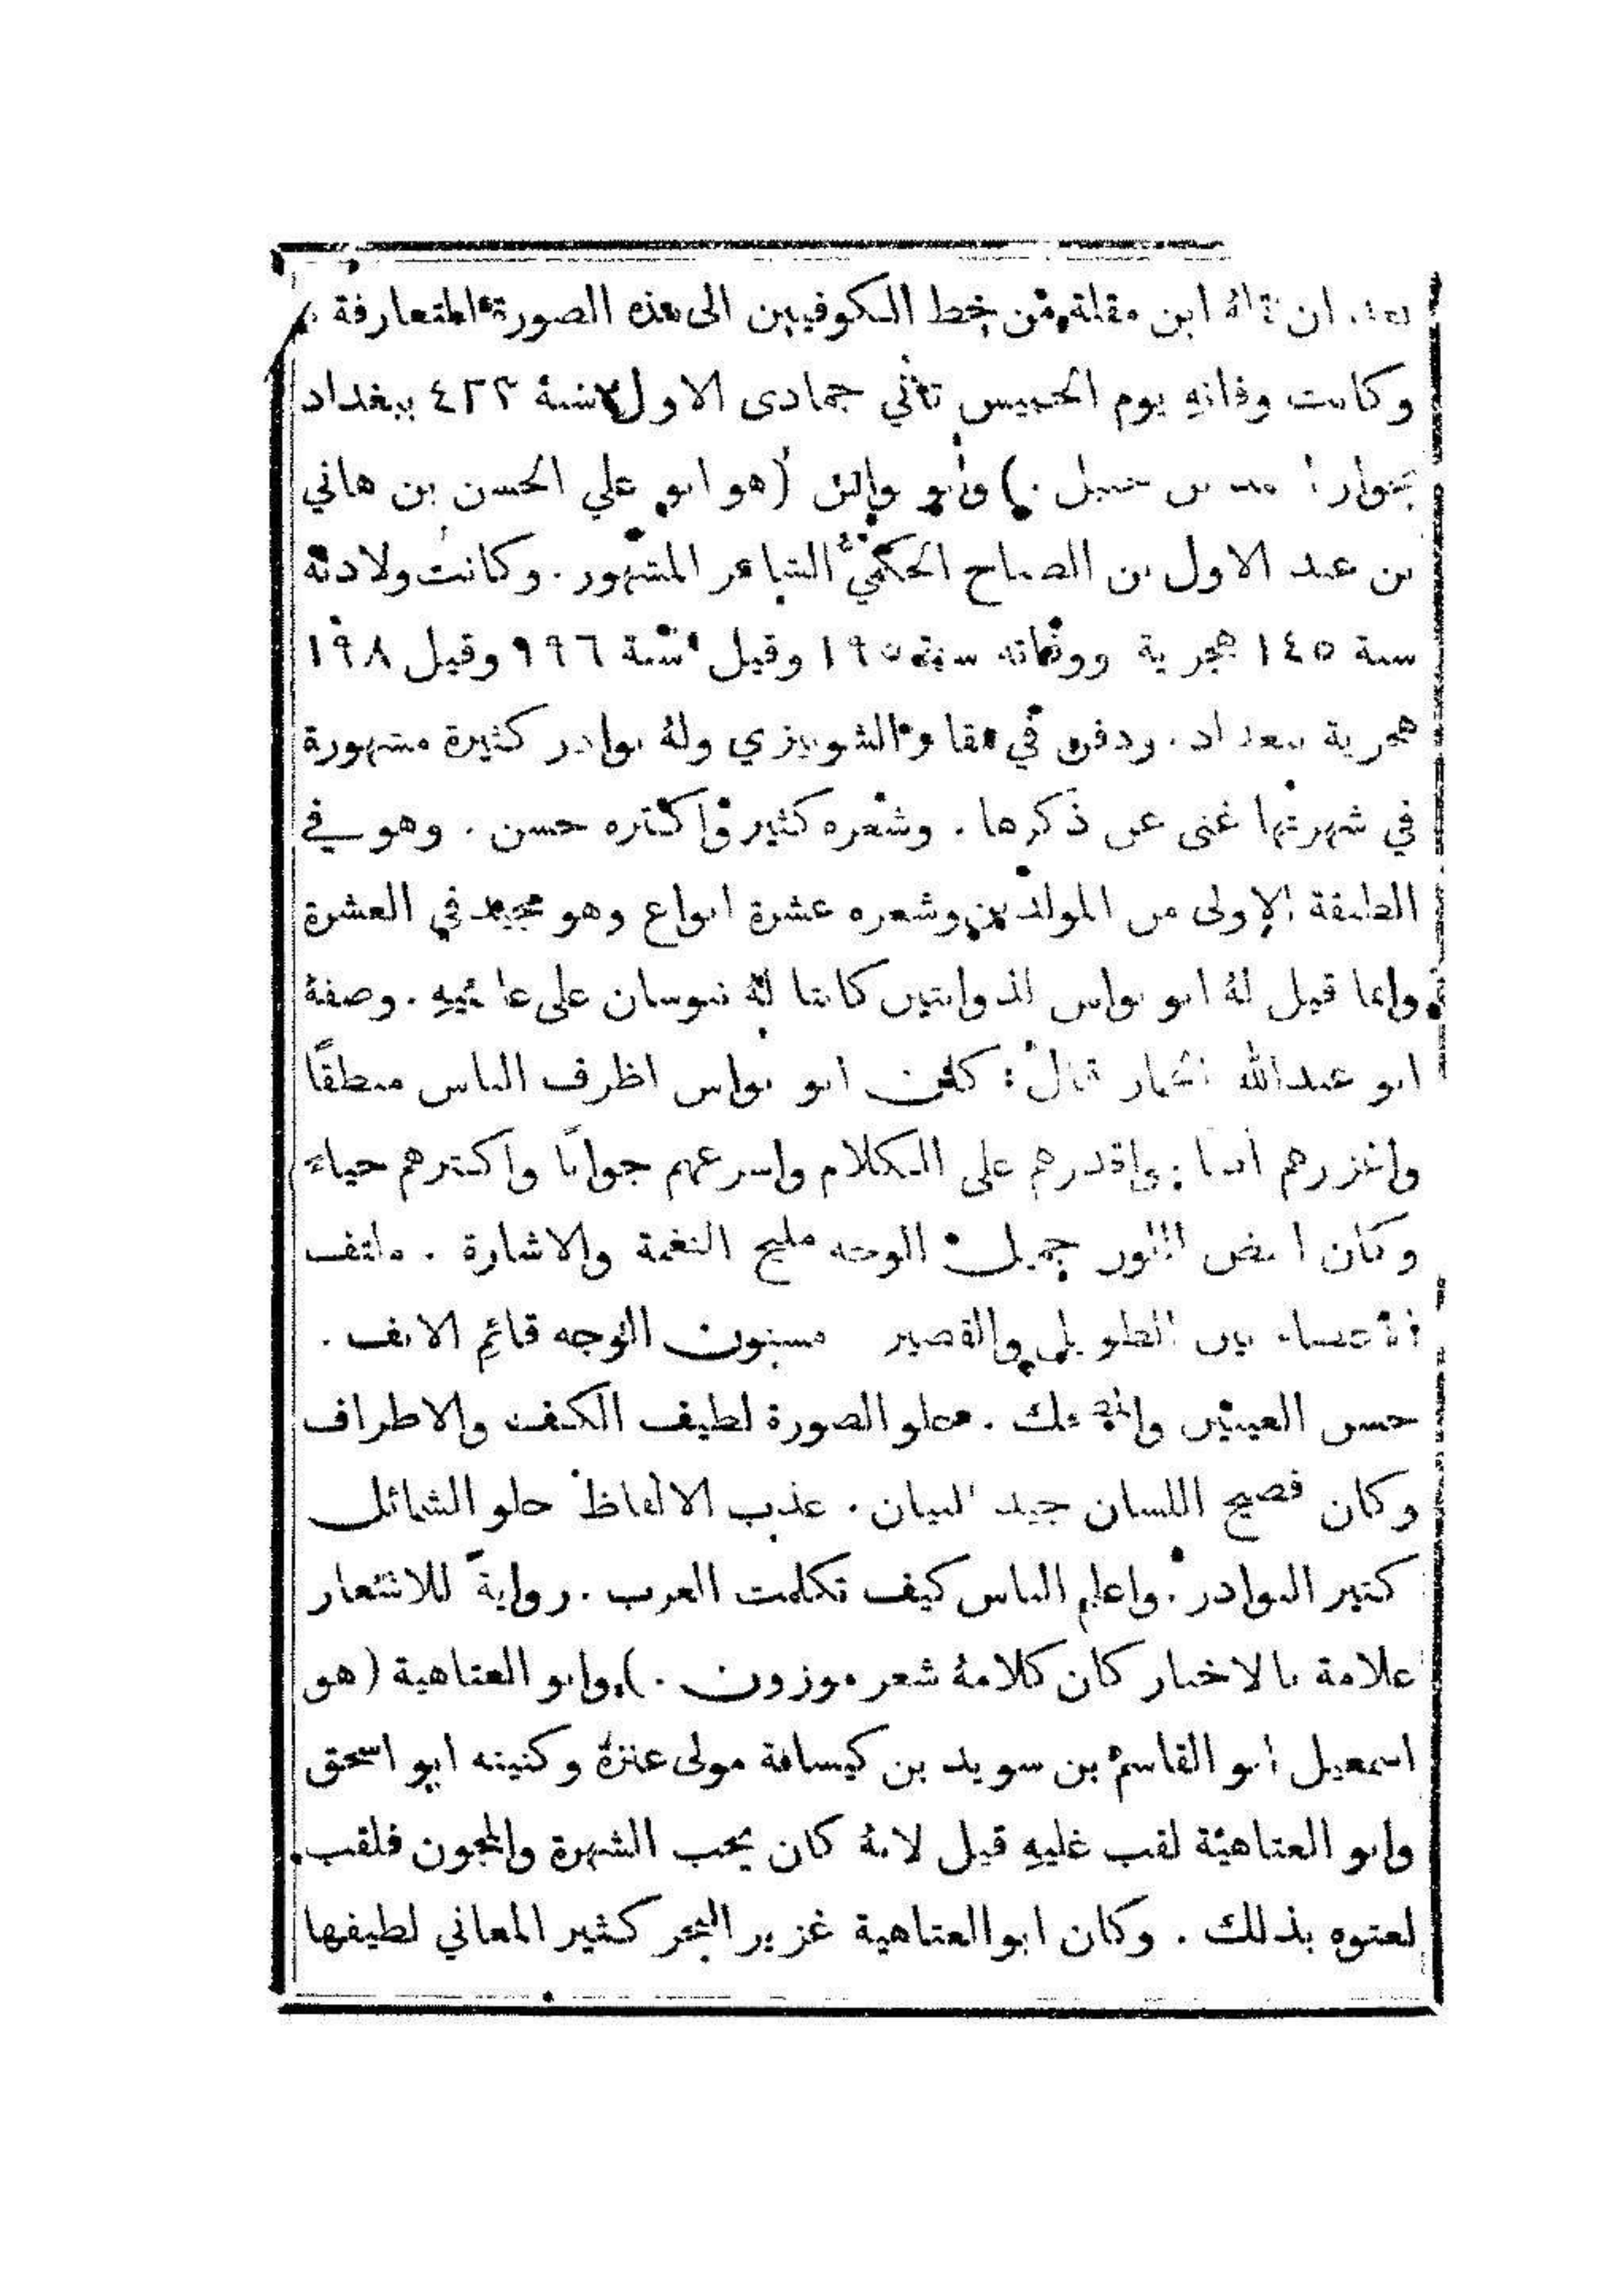 بعد ان نقله ابن مقلة من خط الكوفيين الى هذه الصورة المتعارفة
وكانت وفاته يوم الخميس ثاني جمادى الاول سنة ٤٢٣ ببغداد
بجوار بن حنبل .) وأبو (هو ابو علي الحسن بن هاني
بن عبد الاول بن الصباح الحكمي الشاعر المشهور . وكانت ولادته
سنة ١٤٥ هجرية ووفاته سنة ١٩٥ وقيل سنة ١٩٦ وقيل ١٩٨
هجرية ببغداد . ودفن في مقابر الشونيزي ولهُ نوادر كثيرة مشهورة
في شهرتها غنى عن ذكرها . وشعره كثير واكثره حسن . وهو في
الطبقة الاولى من المولدين وشعره عشرة انواع وهو مجيد في العشرة
وانما قيل لهُ ابو نواس لذوابتين كانتا لهُ تنوسان على عاتقيهِ . وصفهُ
ابو عبدالله قال : كان ابو نواس اظرف الناس منطقًا
واغزرهم أدبا . واقدرهم على الكلام واسرعهم جوابًا واكثرهم حياءً
وكان ابيض اللون جميل الوجه مليح النغمة والاشارة . ملتف
الاعضاء بين الطويل والقصير مسنون الوجه قائم الانف .
حسن العينين والمضحك . حلو الصورة لطيف الكف والاطراف
وكان فصيح اللسان جيد البيان . عذب الالفاظ حلو الشمائل
كثير النوادر . واعلم الناس كيف تكلمت العرب . روايةً للاشعار
علامة بالاخبار كان كلامهُ شعر موزون .) وابو العتاهية (هو
اسمعيل ابو القاسم بن سويد بن كيسافة مولى عنزة وكنيته ابو اسحق
وابو العتاهية لقب غليهِ قيل لانهُ كان يحب الشهرة والمجون فلقب
لعتوه بذلك . وكان ابو العتاهية غزير البحر كثير المعاني لطيفها